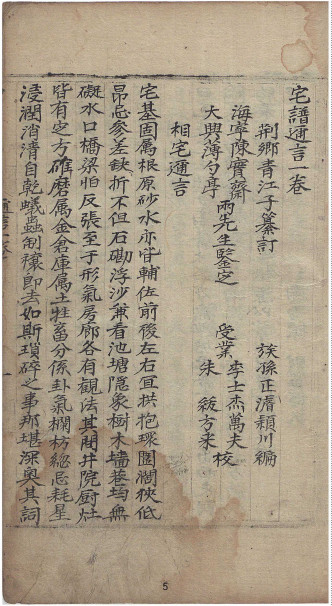 宅譜邇言一卷
荆鄉青江子纂訂
族孫正濬穎川編
海寧陳實齋
大興薄勺亭
兩先生鑒定
受業
李士杰萬夫
朱紱方來
校
相宅邇言
宅基固屬根原砂水亦皆輔佐前後左右宜拱抱環圍闊狹低
昂忌參差缺折不但石磡浮沙兼看池塘隱象樹木墻巷均無
礙水口橋梁怕反張至于形氣房廊各有觀法其間井院厨灶
皆有定方碓磨属金倉庫属土牲畜分係卦氣欄枋總忌耗星
浸潤消清自乾蟻蟲制禳即去如斯瑣碎之事那堪深奧其詞
邇言
一
5